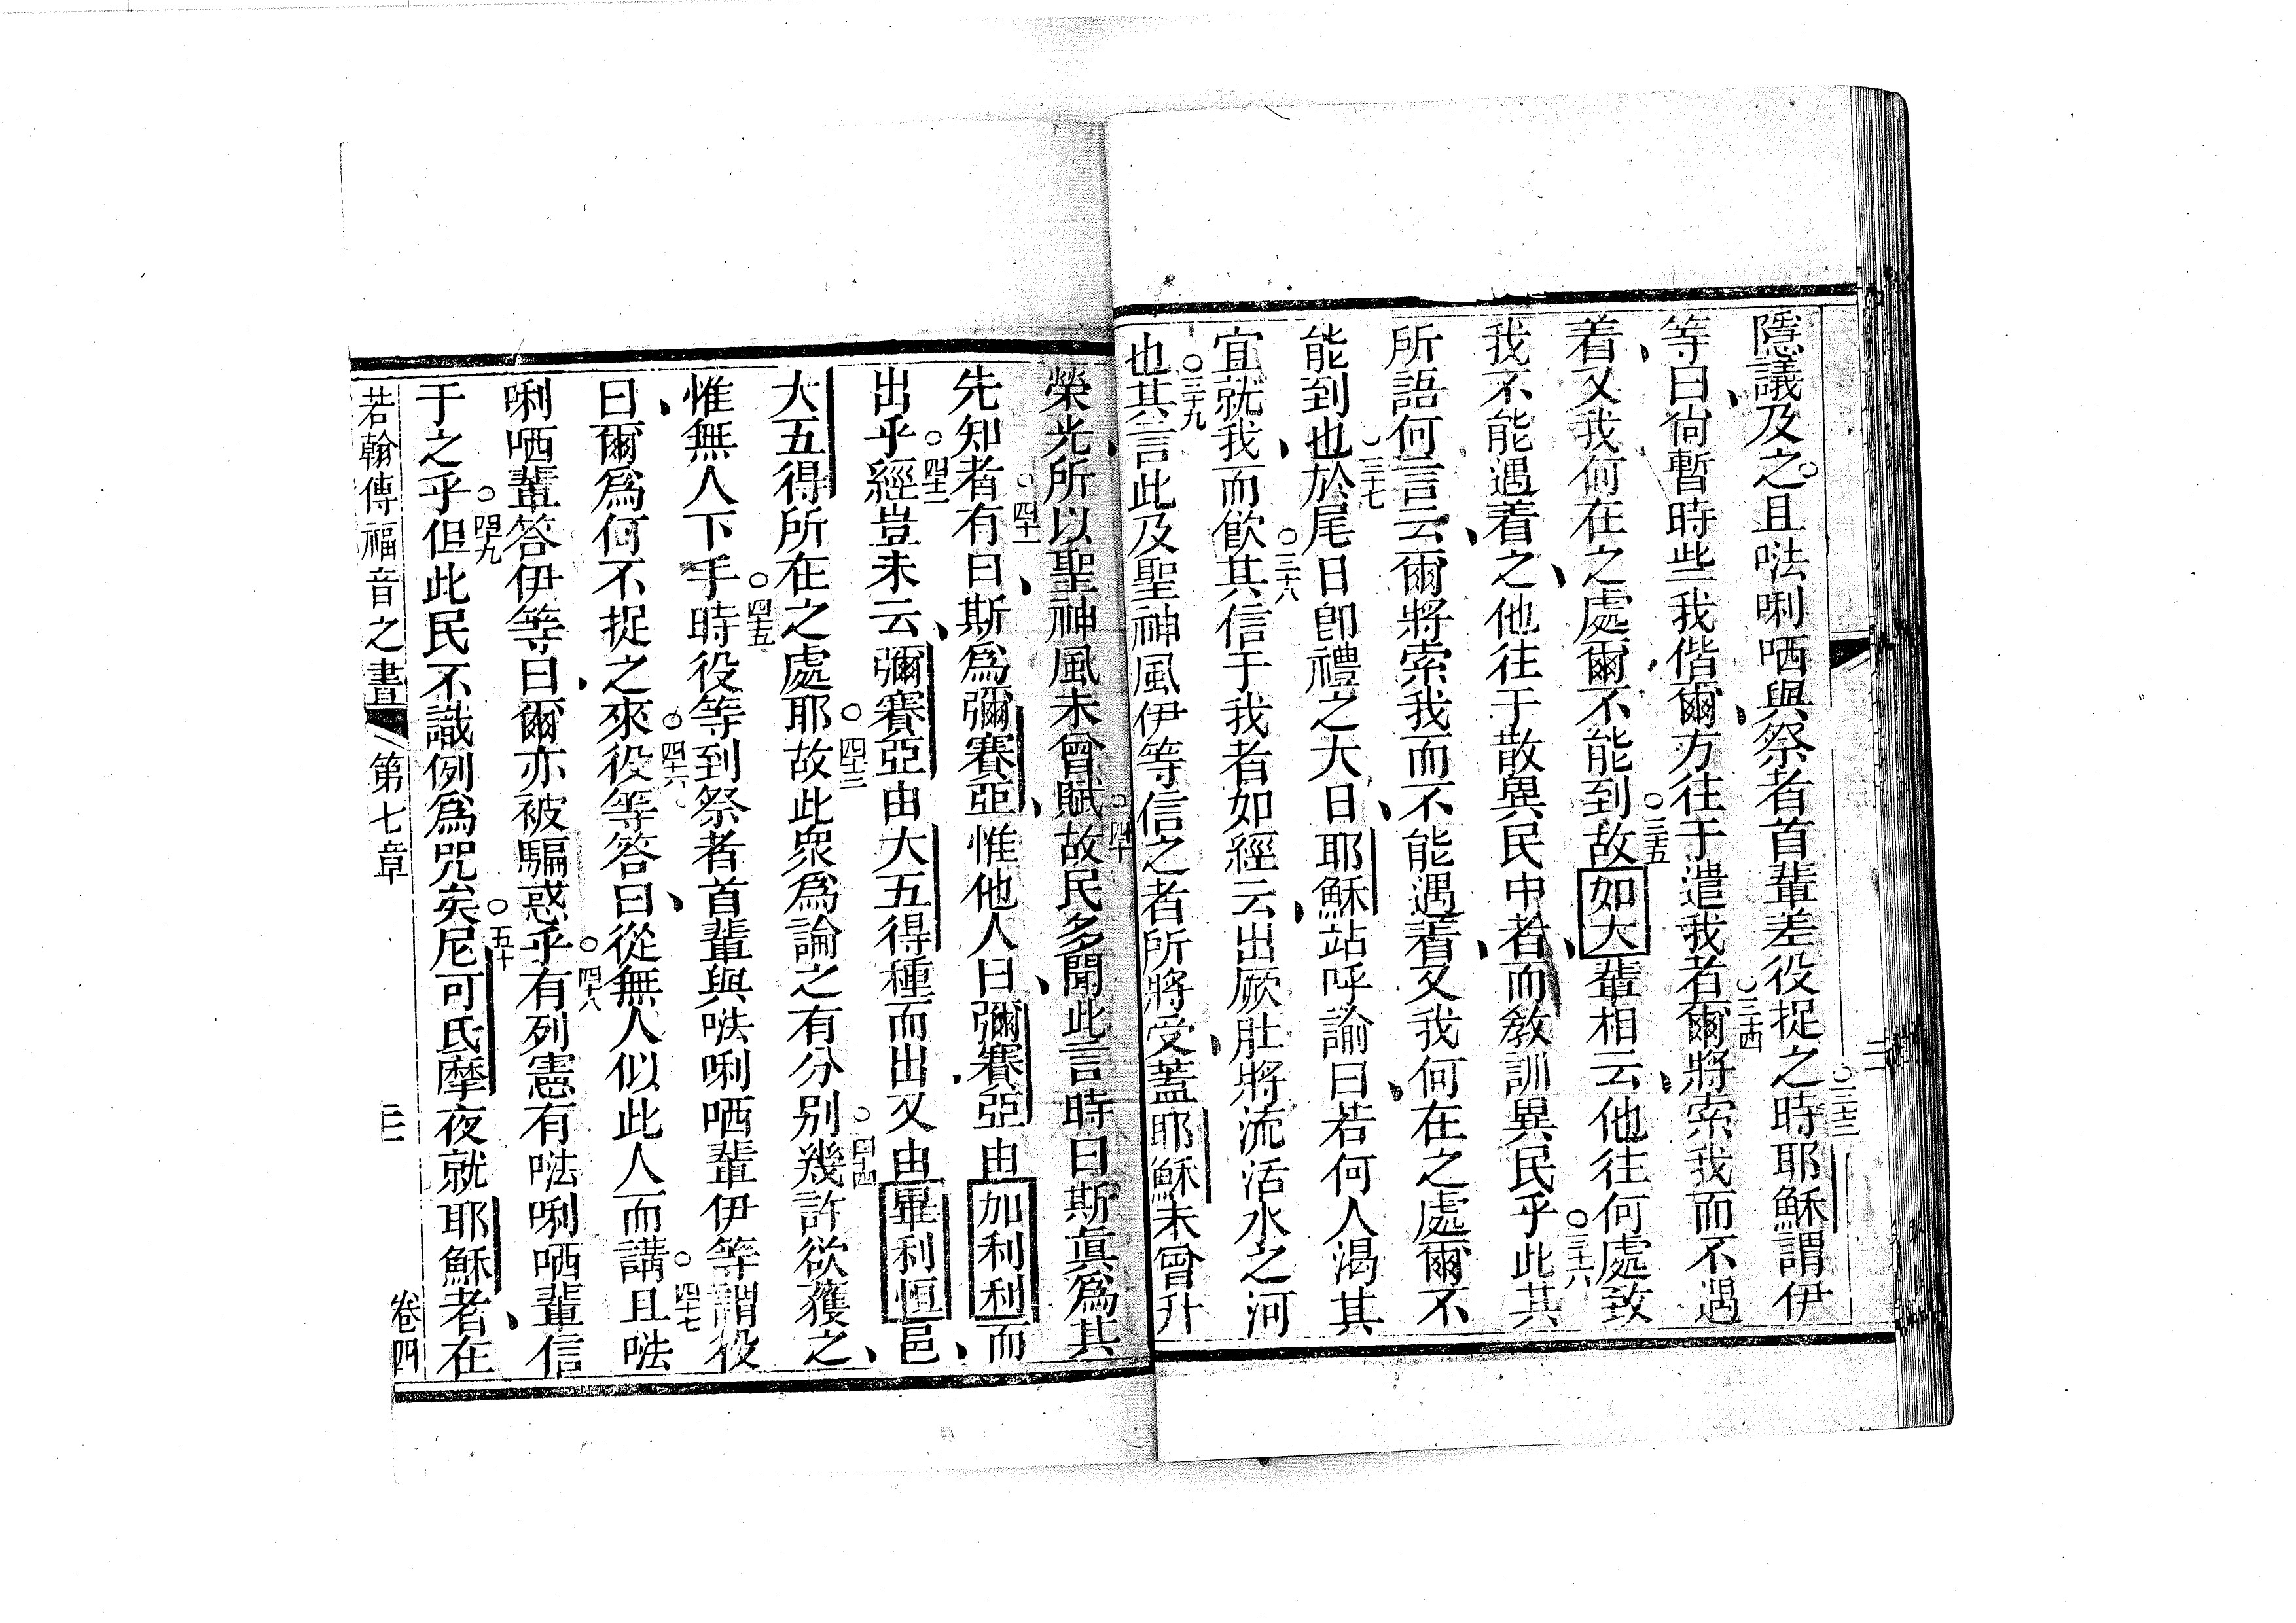 隱議及之且㕸唎哂與祭者首輩差役捉之時耶穌謂伊
○三十三
等曰尙暫時些我偕爾方往于遣我者爾將索我而不遇
○三十四
着又我何在之處爾不能到故如大輩相云他往何處致
○三十五
我不能遇着之他往于散異民中者而敎訓異民乎此其
○三十六
所語何言云爾將索我而不能遇着又我何在之處爾不
能到也於尾日卽禮之大日耶穌站呼諭曰若何人渴其
○三十七
宜就我而飲其信于我者如經云出厥肚將流活水之河
○三十八
也其言此及聖神風伊等信之者所將受蓋耶穌未曾升
○三十九
榮光所以聖神風未曾賦故民多聞此言時曰斯眞爲其
○四十
先知者有曰斯爲彌賽亞惟他人曰彌賽亞由加利利而
○四十一
出乎經豈未云彌賽亞由大五得種而出又由畢利恒邑
○四十二
大五得所在之處耶故此衆爲論之有分別幾許欲獲之
○四十三
○四十四
惟無人下手時役等到祭者首輩與㕸唎哂輩伊等謂役
○四十五
曰爾爲何不捉之來役等答曰從無人似此人而講且㕸
○四十六
○四十七
唎哂輩答伊等曰爾亦被騙惑乎有列憲有㕸唎哂輩信
○四十八
于之乎但此民不識例爲咒矣尼可氏摩夜就耶穌者在
○四十九
○五十
若翰傳福音之書 第七章 卷四